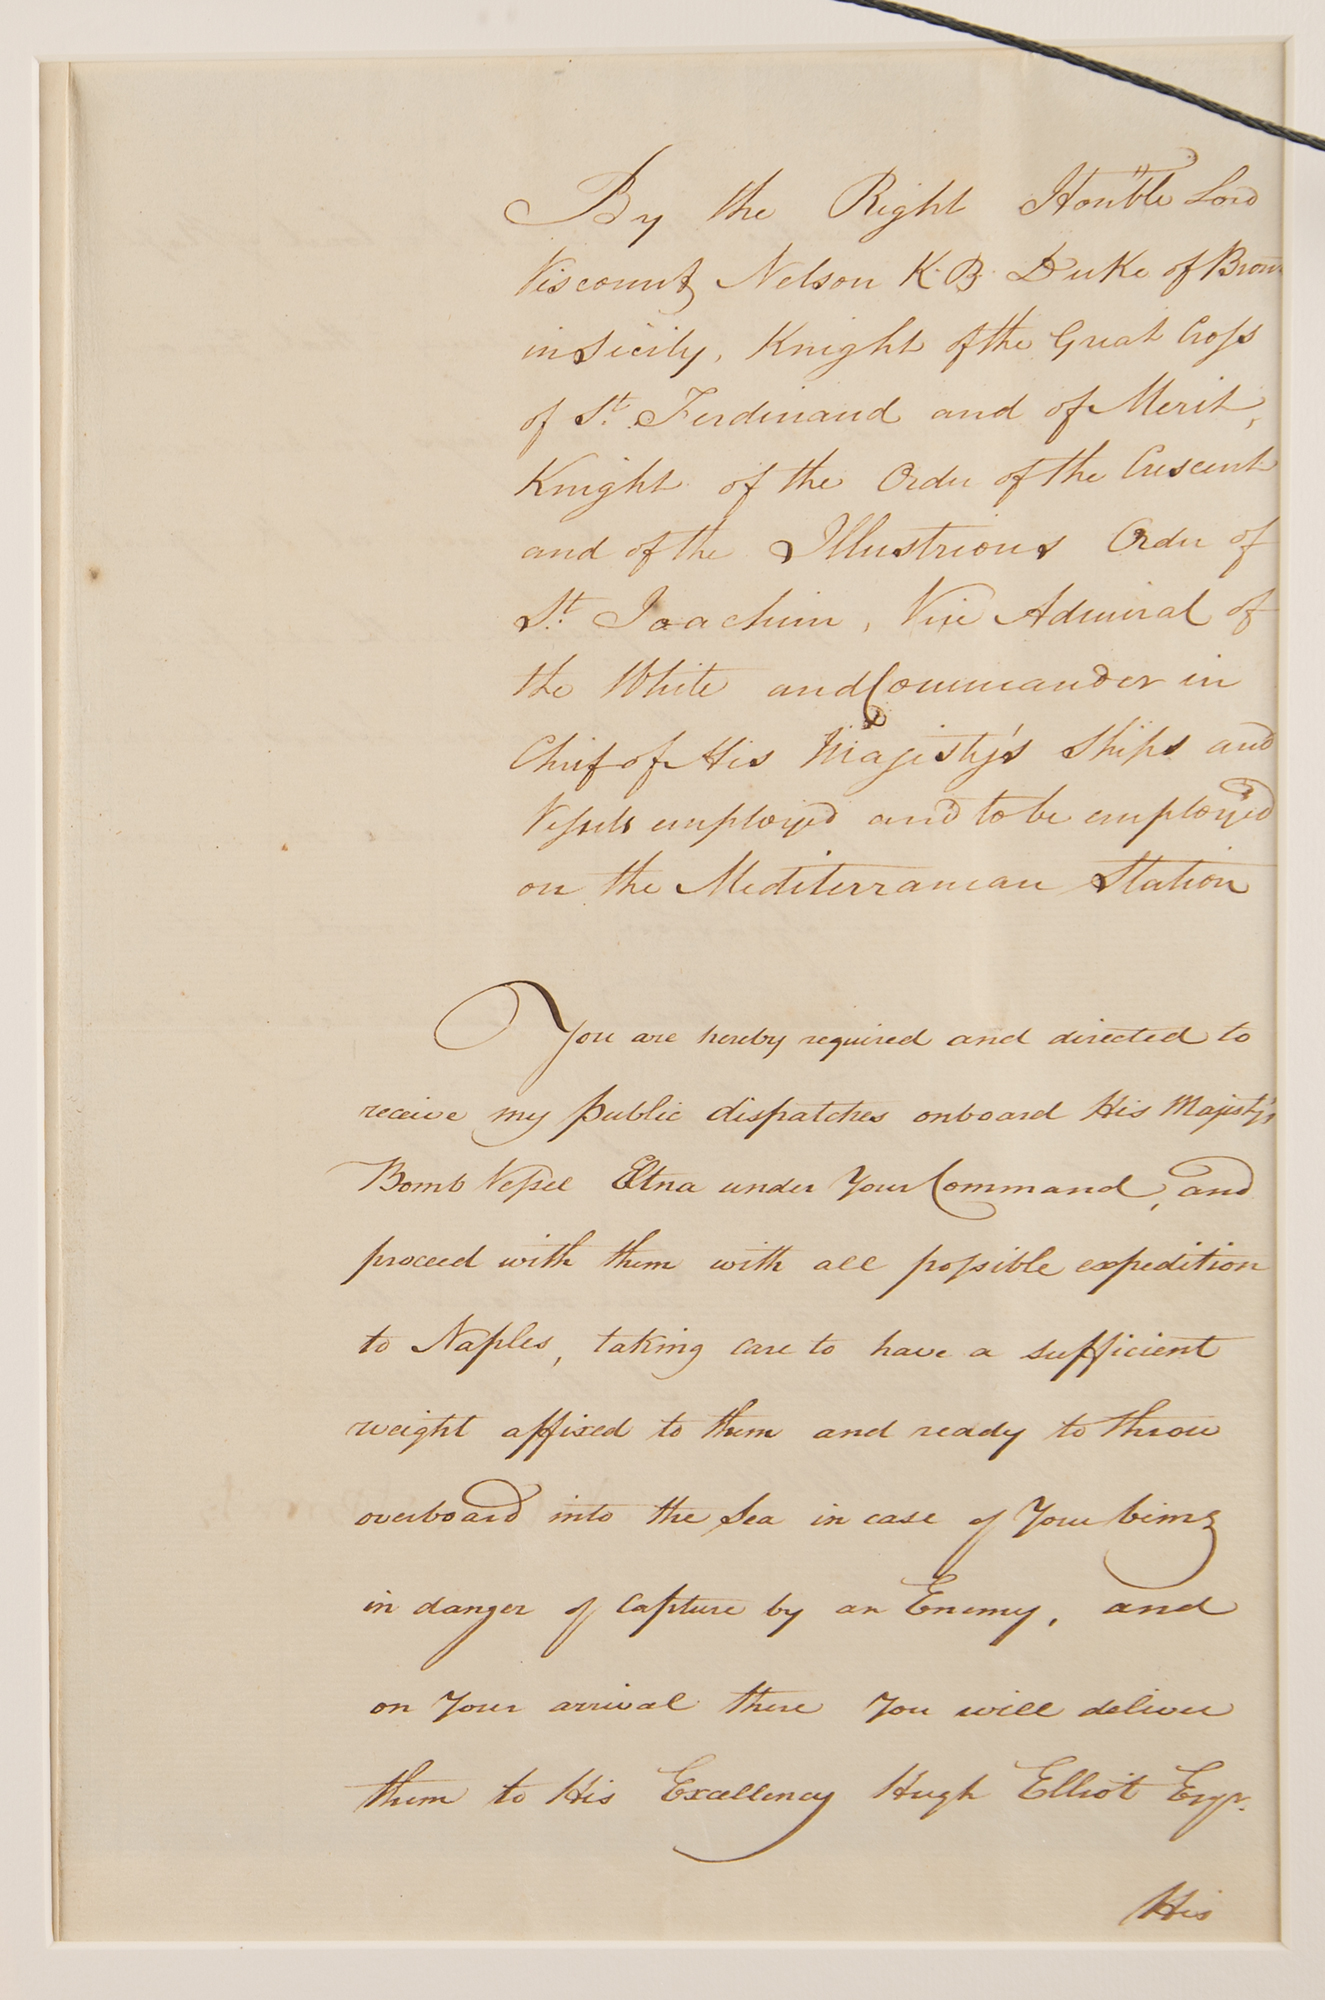 By the Right Honble Lord
Viscount Nelson K.B. Duke of Bron
in Sicily, Knight of the Great Cross
of St. Ferdinand and of Merit,
Knight of the Order of the Crescent
and of the Illustrious Order of
St. Joachim, Vice Admiral of
the White and Commander in
Chief of His Majesty's Ships and
Vessels employed and to be employed
on the Mediterranean Station
You are hereby required and directed to
receive my public dispatches onboard His Majesty's
Bomb Vessel Etna under Your Command, and
proceed with them with all possible expedition
to Naples, taking care to have a sufficient
weight affixed to them and ready to throw
overboard into the Sea in case of Your being
in danger of Capture by an Enemy, and
on Your arrival there You will deliver
them to His Excellency Hugh Elliot Esqr.
His